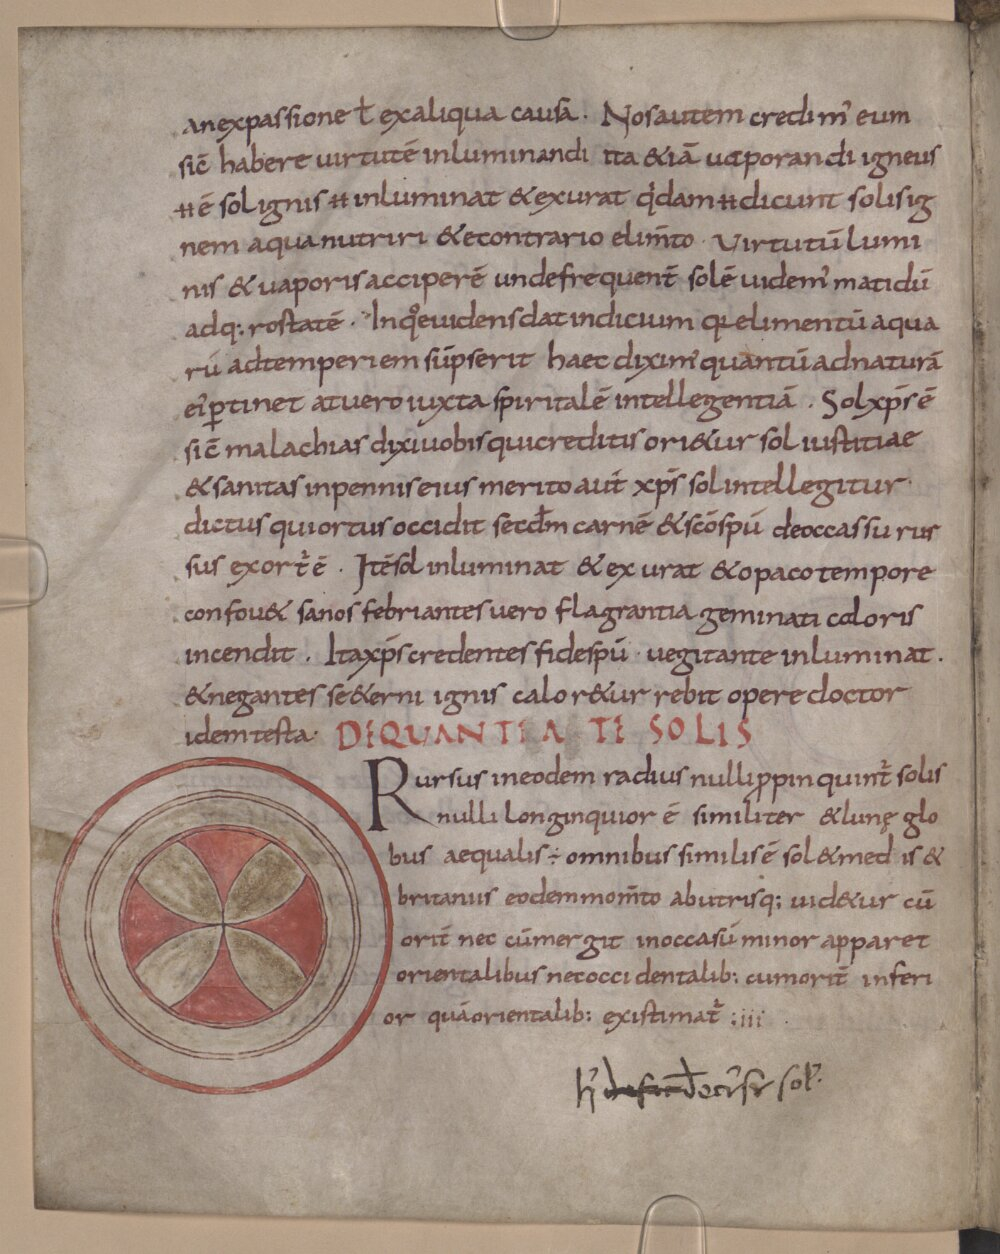 an expassione ł exaliqua causa. Nos autem credim̉ eum
sic̄ habere uirtutē inluminandi ita &iā uaporandi igneus
ē sol ignis inluminat & exurat dicunt solis ig
nem aqua nutriri & econtrario elim̄to. Uirtutū lumi
nis & uaporis acciperē unde frequent̄ solē uidem̉ matidū
adq: rostatē. In q̊ euidens dat indicium elimentū aqua
rū ad temperiem sūpserit haec dixim̉ quantū ad naturā
eỉ ꝑtinet at uero iuxta spiritalē intellegentiā. Sol xp̄s ē
sic̄ malachias dixi uobis qui creditis ori&ur sol iustitiae
& sanitas inpennis eius merito aut̄ xp̄s sol intellegitur
dictus qui ortus occidit secd̄m carnē & sc̄o sp̄ū deoccassu rus
sus exort̄ ē. Itē sol inluminat & exurat & opaco tempore
confou& sanos febriantes uero flagrantia geminati caloris
incendit. Ita xp̄s credentes fidesp̄ū uegitante inluminat.
& negantes se &erni ignis calor &ur rebit opere doctor
idem testa. DE QUANTITATE SOLIS
Rursus in eodem radius nulli ꝓpinquint̄ solis
nulli longinquior ē similiter & lunę glo
bus aequalis ÷ omnibus similis ē sol & medis &
britanus eodem mom̄to ab utrisq; uid&ur cū
orit̄ nec cū mergit in occasū minor apparet
orientalibus nec occidentalib: cum orit̄ inferi
or quā orientalib: existimat̄ :iii
sol̉.